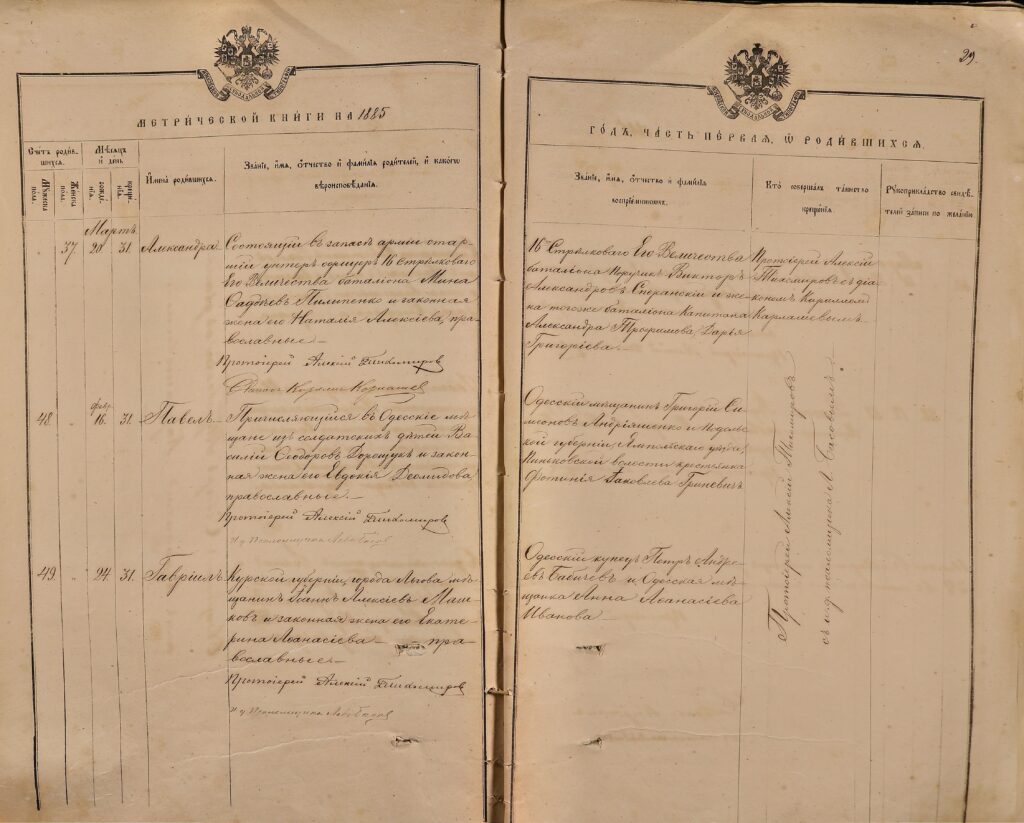 29.
МЕТРИ́ЧЕСКОЙ КНИ́ГИ НА 1885
ГО́ДЪ, ЧАСТЬ ПЕ́РВАЯ, Ѡ РОДИ́ВШИХСЯ.
Счетъ роди́вшихся.
Мужеска пола.
Женска пола.
Мѣсяцъ и день
рожденія.
крещенія.
Имена роди́вшихся.
Зва́ніе, и́мя, о́тчество и фами́лія роди́телей, и како́го
вѣроисповѣ́данія.
Зва́ніе, и́мя, о́тчество и фами́лія
воспріе́мниковъ.
Кто соверша́лъ та́инство
креще́нія.
Рукоприкла́дство свидѣ́-
телей за́писи по жела́нію
Мартъ
37. 20. 31. Александра
Состоящій въ запасѣ арміи стар-
шій унтеръ офицеръ 16 Стрѣлковаго
Его Величества баталіона Мина
Пилипенко и законная
жена его Наталія Алексіева, пра-
вославные.—
Протоіерей Алексій Тихомировъ
16 Стрѣлковаго Его Величества
баталіона Поручикъ Викторъ
Александровъ Сперанскій и же-
на тогоже баталіона Капитана
Александра Трофимова, Дарья
Григоріева.
Протоіерей Алексій
Тихомировъ съ діа-
кономъ Кирилломъ
Карлашевымъ.
48. „ февр. 16. 31. Павелъ
Причисляющійся въ Одесскіе мѣ-
щане изъ солдатскихъ дѣтей Ва-
силій Ѳеодоровъ Дорощукъ и закон-
ная жена его Евдокія Деомидова
православные.—
Протоіерей Алексій Тихомировъ
Одесскій мѣщанинъ Григорій Си-
меоновъ Андріяшенко и Подоль-
ской губерніи, Ямпольскаго уѣзда,
волости крестьянка
Фотинія Іаковлева Гриневичъ
49. „ 24. 31. Гавріилъ
Курской губерніи, города Льгова мѣ-
щанинъ Іоаннъ Алексіевъ Маш-
ковъ и законная жена его Екате-
рина Аѳанасіева — пра-
вославные.—
Протоіерей Алексій Тихомировъ
Одесскій купецъ Петръ Андре-
евъ Бабичевъ и Одесская мѣ-
щанка Анна Аѳанасіева
Иванова.
Протоіерей Алексій Тихомировъ